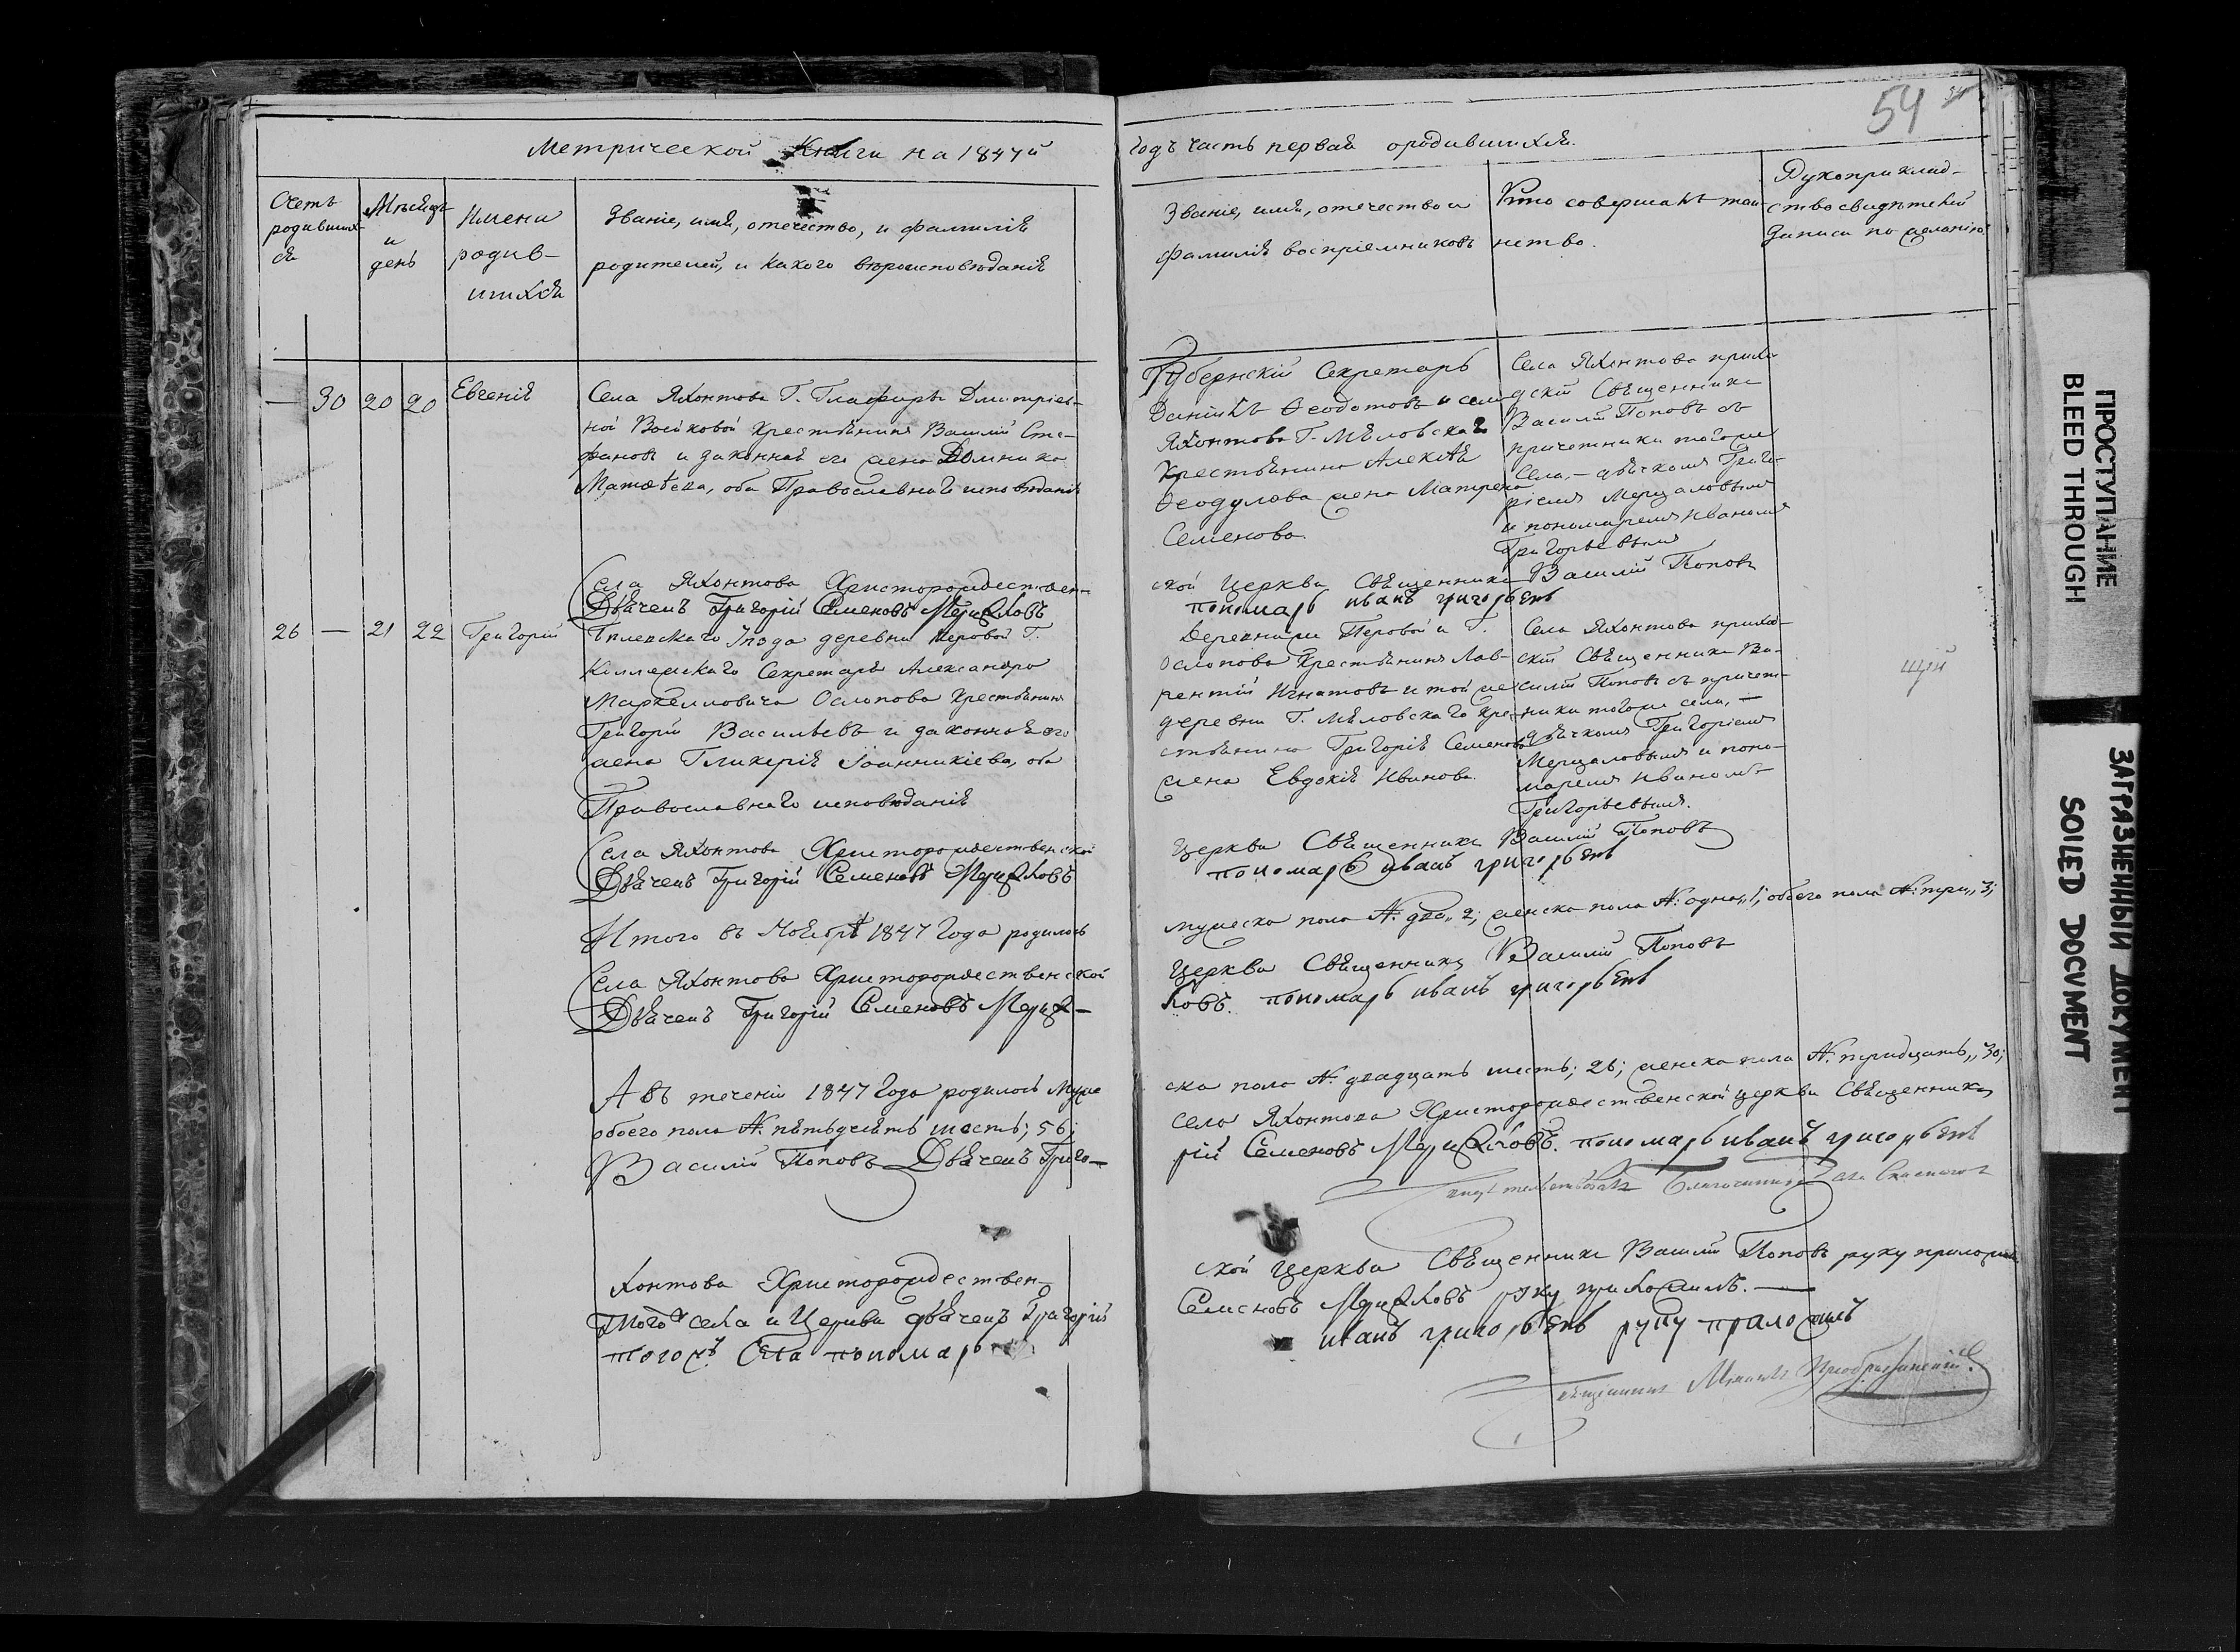 Метрической Книги на 1847й
годъ часть первая ородившихся.
54
Счетъ
родивших-
ся
Мѣсяцъ
и
день
Имена
родив-
шихся
Званіе, имя, отечество, и фамилія
родителей, и какого вѣроисповѣданія
Званіе, имя, отечество и
фамилія воспріемниковъ
Кто совершалъ таи-
нство.
Рукоприклад-
ство свидѣтелей
записи по желанію
— 30 20 20 Евгенія
Села Яхонтова Г. Глафиры Дмитріев-
ной Воейковой крестьянинъ Василій Сте-
фановъ и законная его жена Домника
Матѳѣева, оба Православнаго исповѣданія
Губернскій Секретарь
Даніилъ Ѳеодотовъ и села
Яхонтова Г. Мѣловскаго
Крестьянина Алексѣя
Ѳеодулова жена Матрена
Семенова
Села Яхонтова прихо-
дскій Священникъ
Василій Поповъ съ
причетники тогоже
Села, — дьячкомъ Григо-
ріемъ Мерцаловымъ
и пономаремъ Иваномъ
Григорьевымъ
Села Яхонтова Христорождествен-
ской Церкви Священникъ Василій Поповъ
Дьячекъ Григорій Семеновъ Мерцаловъ
пономарь иванъ григорьевъ
26 — 21 22 Григорій
уѣзда деревни Перовой Г.
Коллежскаго Секретаря Александра
Маркелловича Ослопова Крестьянинъ
Григорій Васильевъ и законная его
жена Гликерія Іоанникіева, оба
Православнаго исповѣданія
Деревни Перовой и Г.
Ослопова Крестьянинъ Лав-
рентій Игнатовъ и той же
деревни Г. Мѣловскаго Кре-
стьянина Григорія Семенова
жена Евдокія Иванова.
Села Яхонтова приход-
скій Священникъ Ва-
силій Поповъ съ причет-
ники тогоже села, —
дьячкомъ Григоріемъ
Мерцаловымъ и поно-
маремъ Иваномъ
Григорьевымъ.
Села Яхонтова Христорождественской
Церкви Священникъ Василій Поповъ
Дьячекъ Григорій Семеновъ Мерцаловъ
пономарь иванъ григорьевъ
Итого въ Ноябрѣ 1847 Года родилось
мужеска пола №: два,, 2; женска пола №: одна,, 1; обоего пола №: три,, 3;
Села Яхонтова Христорождественской
Церкви Священникъ Василій Поповъ
Дьячекъ Григорій Семеновъ Мерца-
ловъ. пономарь иванъ григорьевъ
А въ теченіи 1847 Года родилось Муже
ска пола №. двадцать шесть; 26; женска пола №. тридцать,, 30;
обоего пола №. пятьдесятъ шесть; 56;
села Яхонтова Христорождественской церкви Священникъ
Василій Поповъ Дьячекъ Григо-
рій Семеновъ Мерцаловъ. пономарь иванъ григорьевъ
Благочинный
хонтова Христорождествен-
ской Церкви Священникъ Василій Поповъ руку приложилъ
тогожъ села и Церкви дьячекъ Григорій
Семеновъ Мерцаловъ руку приложилъ. —
тогожъ села пономарь
иванъ григорьевъ руку приложилъ
Преображенскій.
ПРОСТУПАНИЕ
BLEED THROUGH
ЗАГРЯЗНЕННЫЙ ДОКУМЕНТ
SOILED DOCUMENT